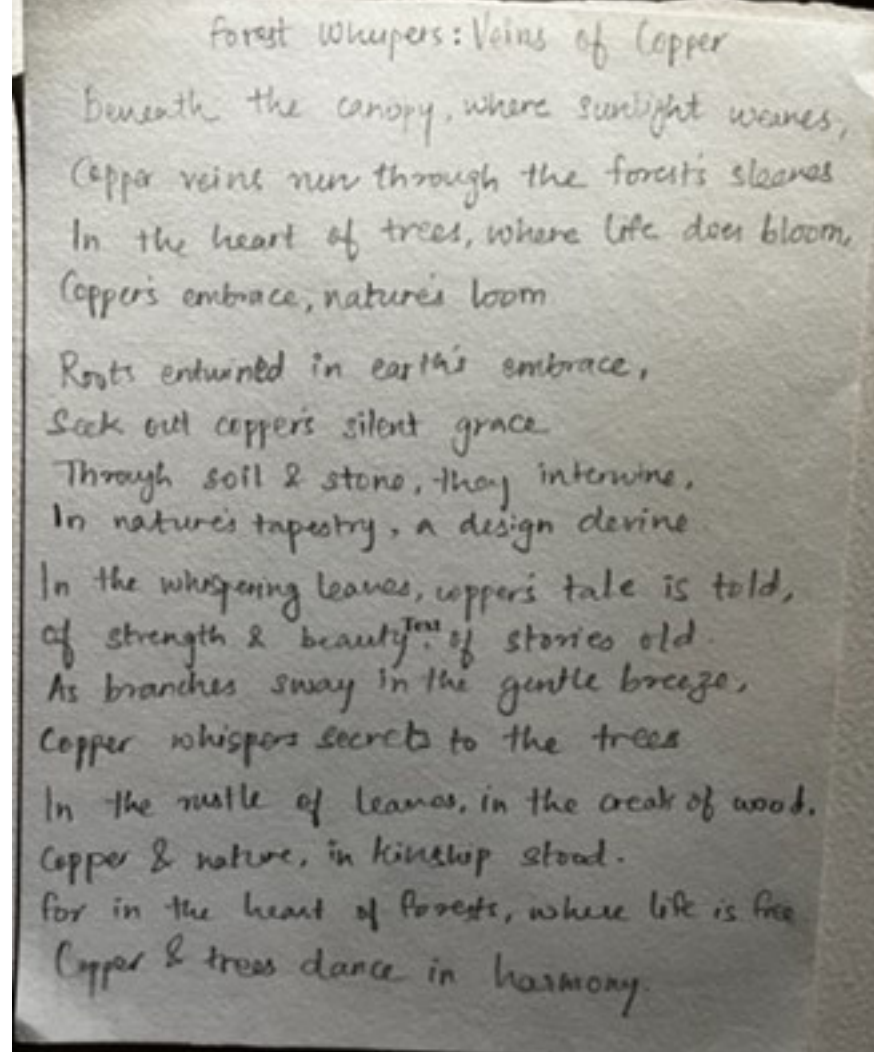 Forest Whispers: Veins of Copper
Beneath the canopy, where sunlight weaves,
Copper veins run through the forest's sleaves
In the heart of trees, where life does bloom,
Copper's embrace, nature's loom
Roots entwined in earth's embrace,
Seek out copper's silent grace
Through soil & stone, they interwine,
In nature's tapestry, a design devine
In the whispering leaves, copper's tale is told,
of strength & beauty Text of stories old.
As branches sway in the gentle breeze,
Copper whispers secrets to the trees
In the rustle of leaves, in the creak of wood,
Copper & nature, in kinship stood.
for in the heart of forests, where life is free
Copper & trees dance in harmony.